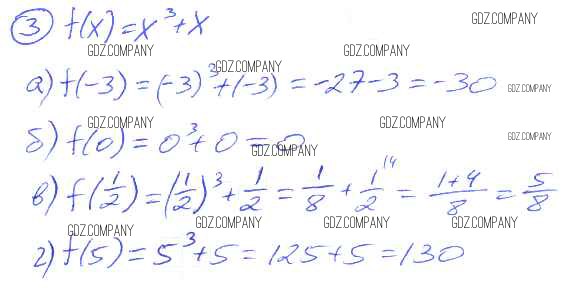 3 f(x)=x³+x GDZ.COMPANY
GDZ.COMPANY GDZ.COMPANY
GDZ.COMPANY
а) f(-3)=(-3)³+(-3)=-27-3=-30 GDZ.COMPANY
GDZ.COMPANY GDZ.COMPANY
б) f(0)=0³+0=0 GDZ.COMPANY
GDZ.COMPANY
в) f(1/2)=(1/2)³+1/2=1/8+1/2^(4=(1+4)/8=5/8
GDZ.COMPANY GDZ.COMPANY GDZ.COMPANY GDZ.COMPANY
г) f(5)=5³+5=125+5=130